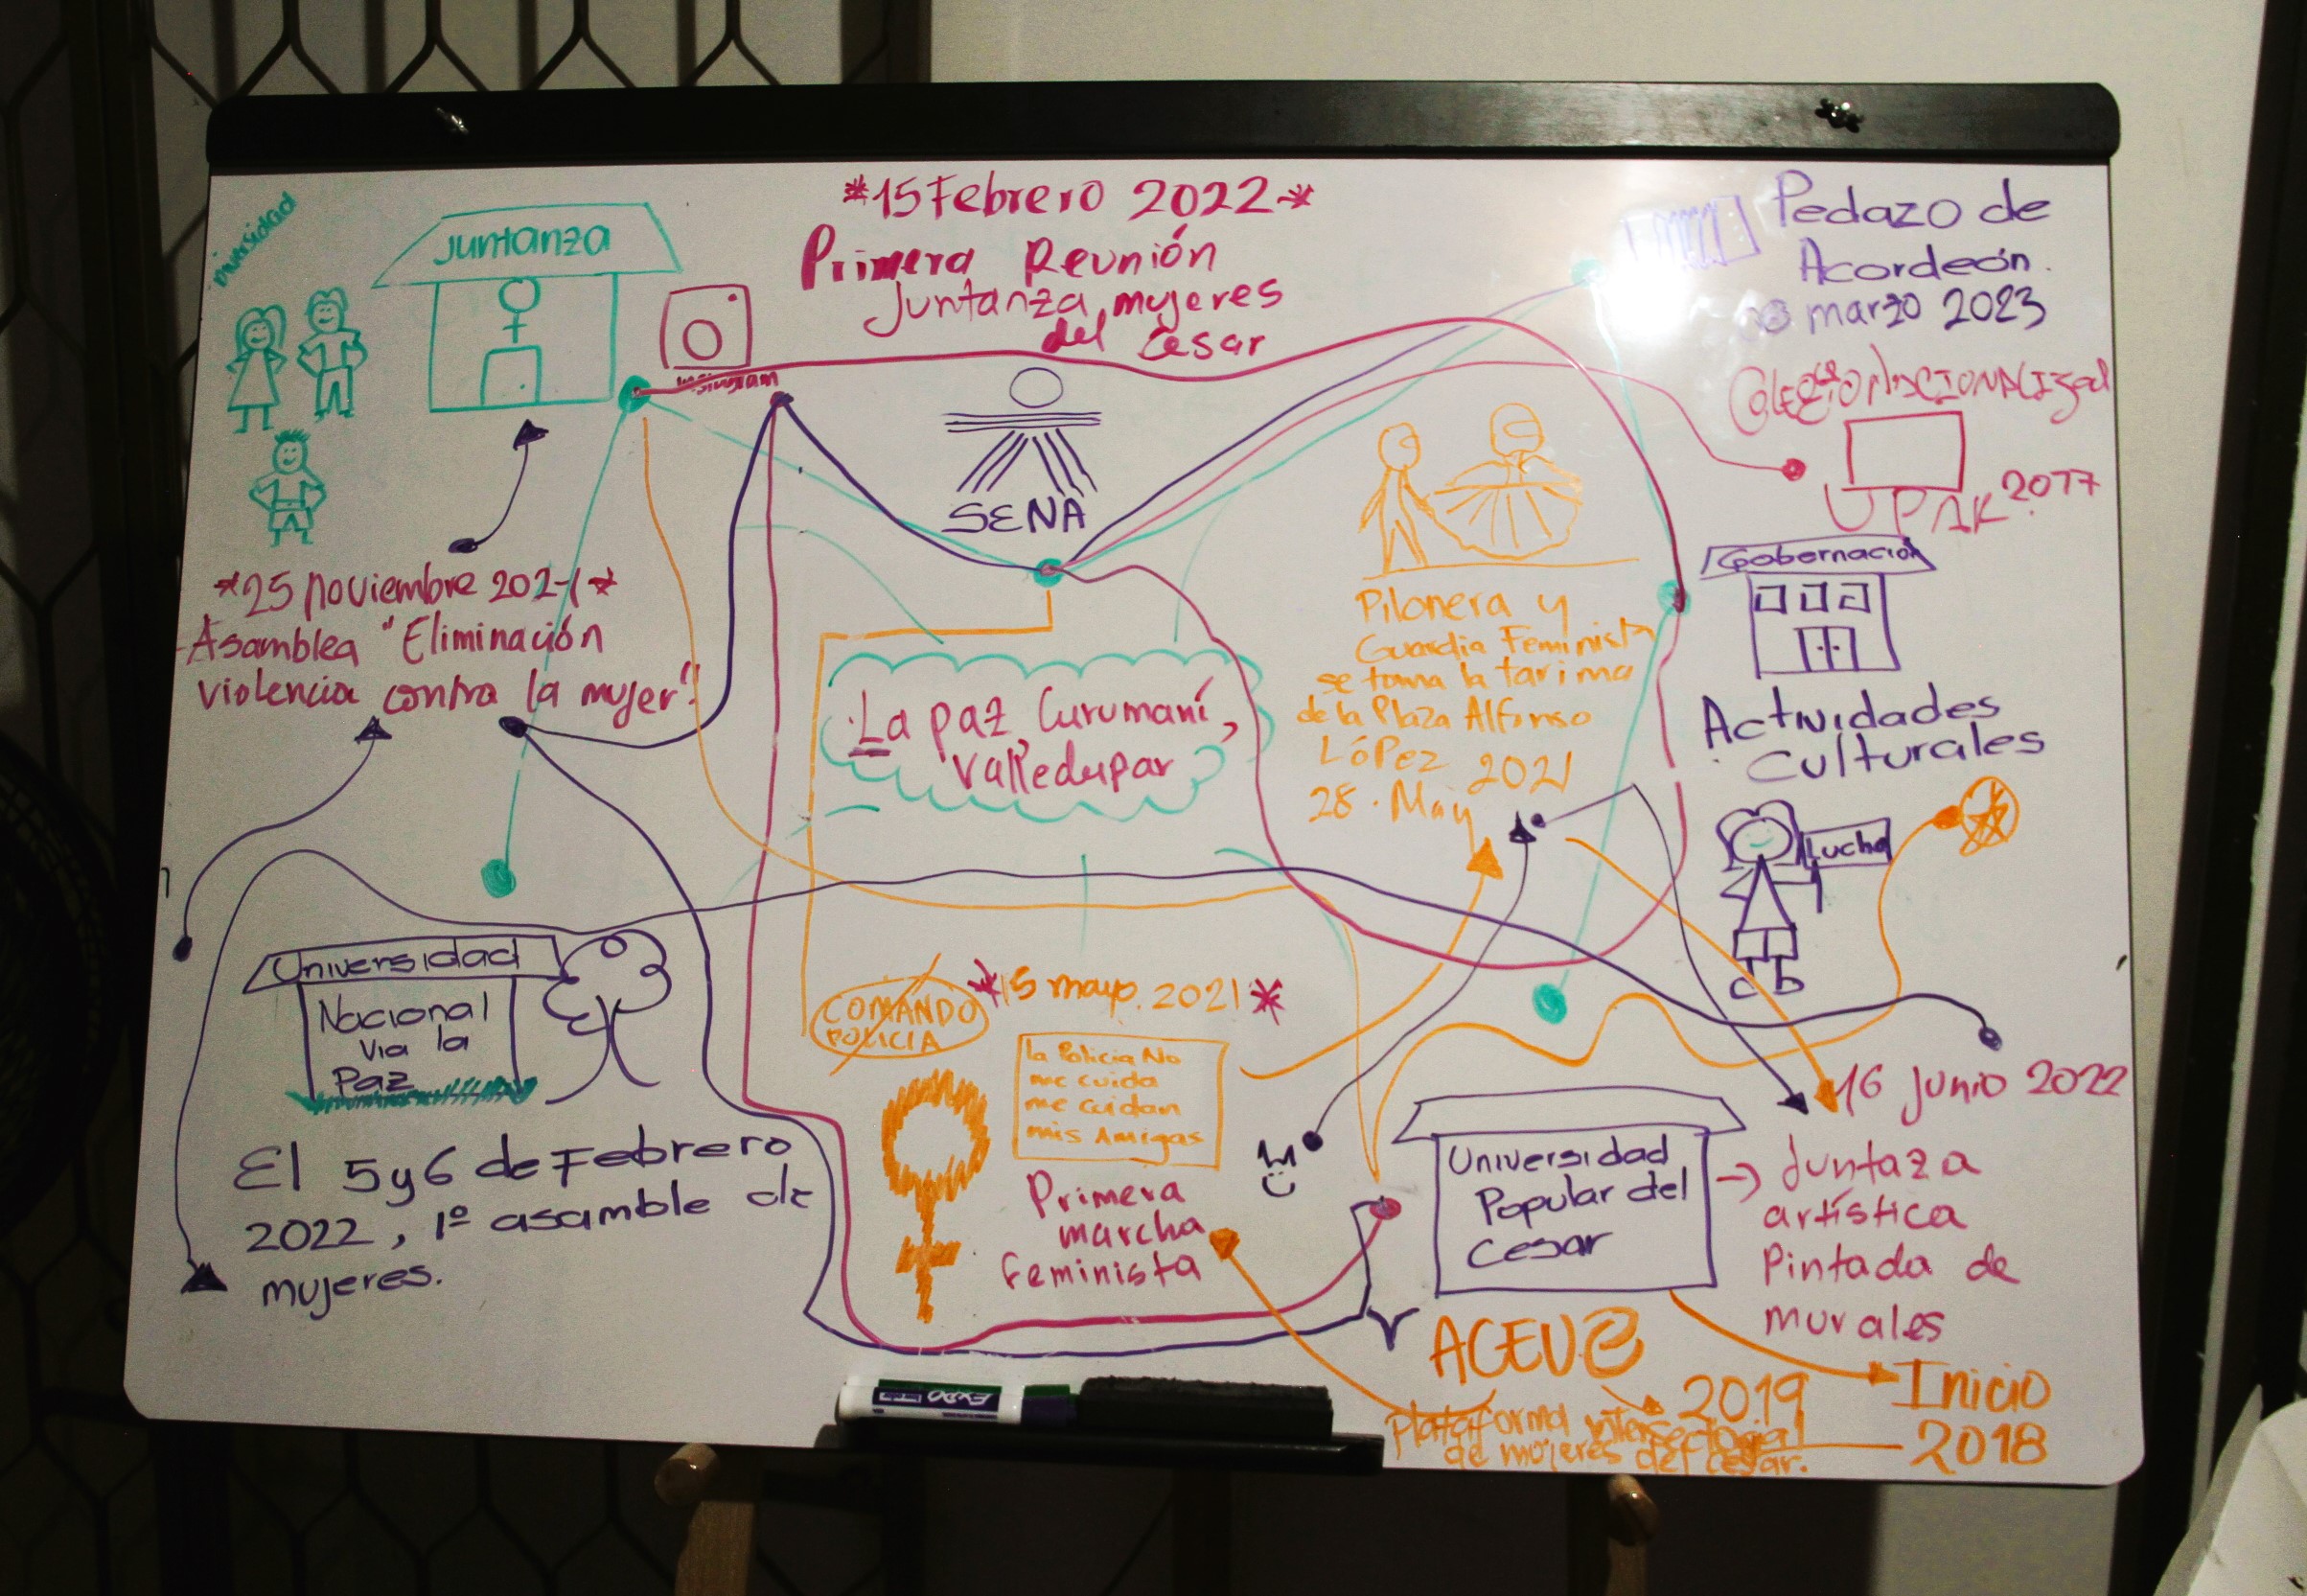 Diversidad
Juntanza
Instagram
*15 Febrero 2022*
Primera Reunión
Juntanza mujeres
del Cesar
SENA
Pedazo de
Acordeón.
marzo 2023
Colegio Nacionalizad
UPAR 2017
Gobernación
Actividades
Culturales
Lucha
Pilonera y
Guardia Feminista
se toma la tarima
de la Plaza Alfonso
López 2021
28. May
*25 noviembre 2021*
Asamblea "Eliminación
violencia contra la mujer"
La paz, Curumaní,
Valledupar
Universidad
Nacional
Via la
Paz
El 5 y 6 de Febrero
2022, 1º asamble de
mujeres.
COMANDO
POLICIA
*15 mayo. 2021*
la Policia No
me cuida
me cuidan
mis Amigas
Primera
marcha
feminista
Universidad
Popular del
Cesar
16 Junio 2022
→ Juntaza
artística
Pintada de
murales
ACEU@
2019
Plataforma intersectorial
de mujeres del cesar.
Inicio
2018
EXPO